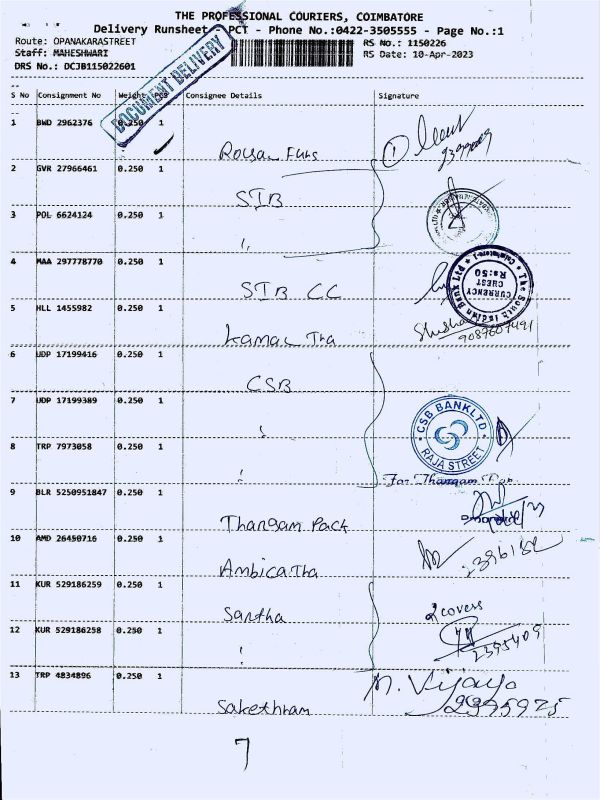 THE PROFESSIONAL COURIERS, COIMBATORE
Delivery Runsheet - PCT - Phone No.:0422-3505555 - Page No.:1
Route: OPANAKARASTREET
RS No.: 1150226
Staff: MAHESHWARI
RS Date: 10-Apr-2023
DRS No.: DCJB115022601
DOCUMENT DELIVERY
S No Consignment No Weight PCS Consignee Details Signature
1 BWD 2962376 0.250 1
2 GVR 27966461 0.250 1
STB
3 POL 6624124 0.250 1
"
4 MAA 297778770 0.250 1
STB CC
The South Indian Bank Ltd
Coimbatore-1
CURRENCY CHEST
Rs:50
5 HLL 1455982 0.250 1
Kamal Tha
9087607491
6 UDP 17199416 0.250 1
CSB
7 UDP 17199389 0.250 1
"
CSB BANK LTD
RAJA STREET
8 TRP 7973058 0.250 1
"
For Thangam
9 BLR 5250951847 0.250 1
Thangam Pack
10 AMD 26450716 0.250 1
Ambica Tha
11 KUR 529186259 0.250 1
Santha
2 covers
12 KUR 529186258 0.250 1
"
2395409
13 TRP 4834896 0.250 1
Sakethram
N. Vijaya
2395975
7